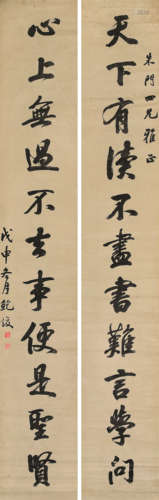 天下有讀不盡書難言學問
朱門四兄雅正
心上無過不去事便是聖賢
戊申冬月鮑俊